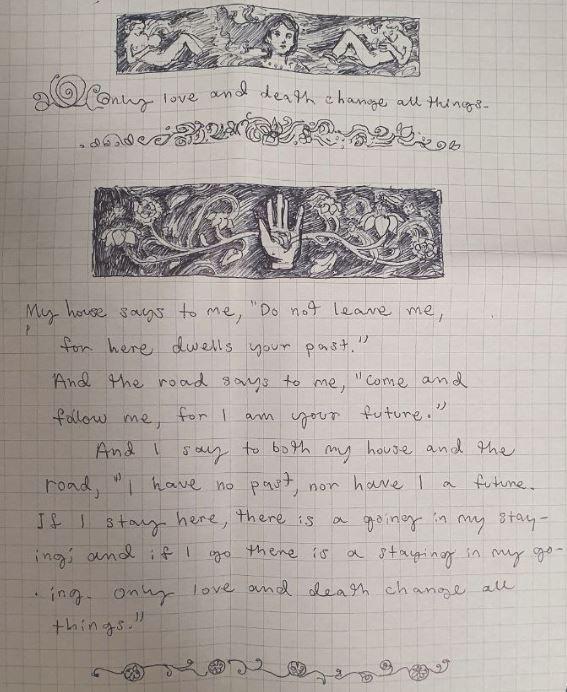 Only love and death change all things.
My house says to me, "Do not leave me,
for here dwells your past."
And the road says to me, "Come and
follow me, for I am your future."
And I say to both my house and the
road, "I have no past, nor have I a future.
If I stay here, there is a going in my stay-
ing; and if I go there is a staying in my go-
ing. Only love and death change all
things."